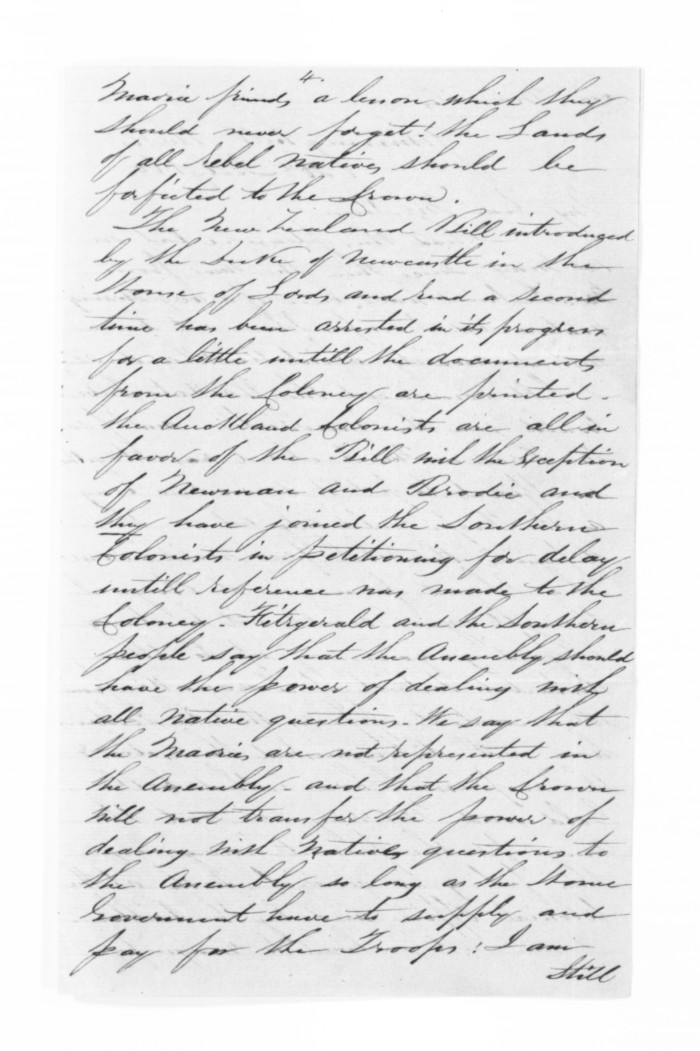 4.
Maorie friends a lesson which they
should never forget! the Lands
of all rebel Natives should be
forfieted to the Crown.
The New Zealand Bill introduced
by the Duke of Newcastle in the
House of Lords and read a second
time has been arrested in its progress
for a little untill the documents
from the Coloney are printed -
the Auckland Colonists are all in
favor of the Bill with the exception
of Newman and Brodie and
they have joined the Southern
Colonists in petitioning for delay
untill reference was made to the
Coloney - Fitzgerald and the Southern
people say that the Assembly should
have the power of dealing with
all Native questions. We say that
the Maories are not represented in
the Assembly - and that the Crown
will not transfer the power of
dealing with Natives questions to
the Assembly so long as the Home
Government have to supply and
pay for the Troops: I am
Still